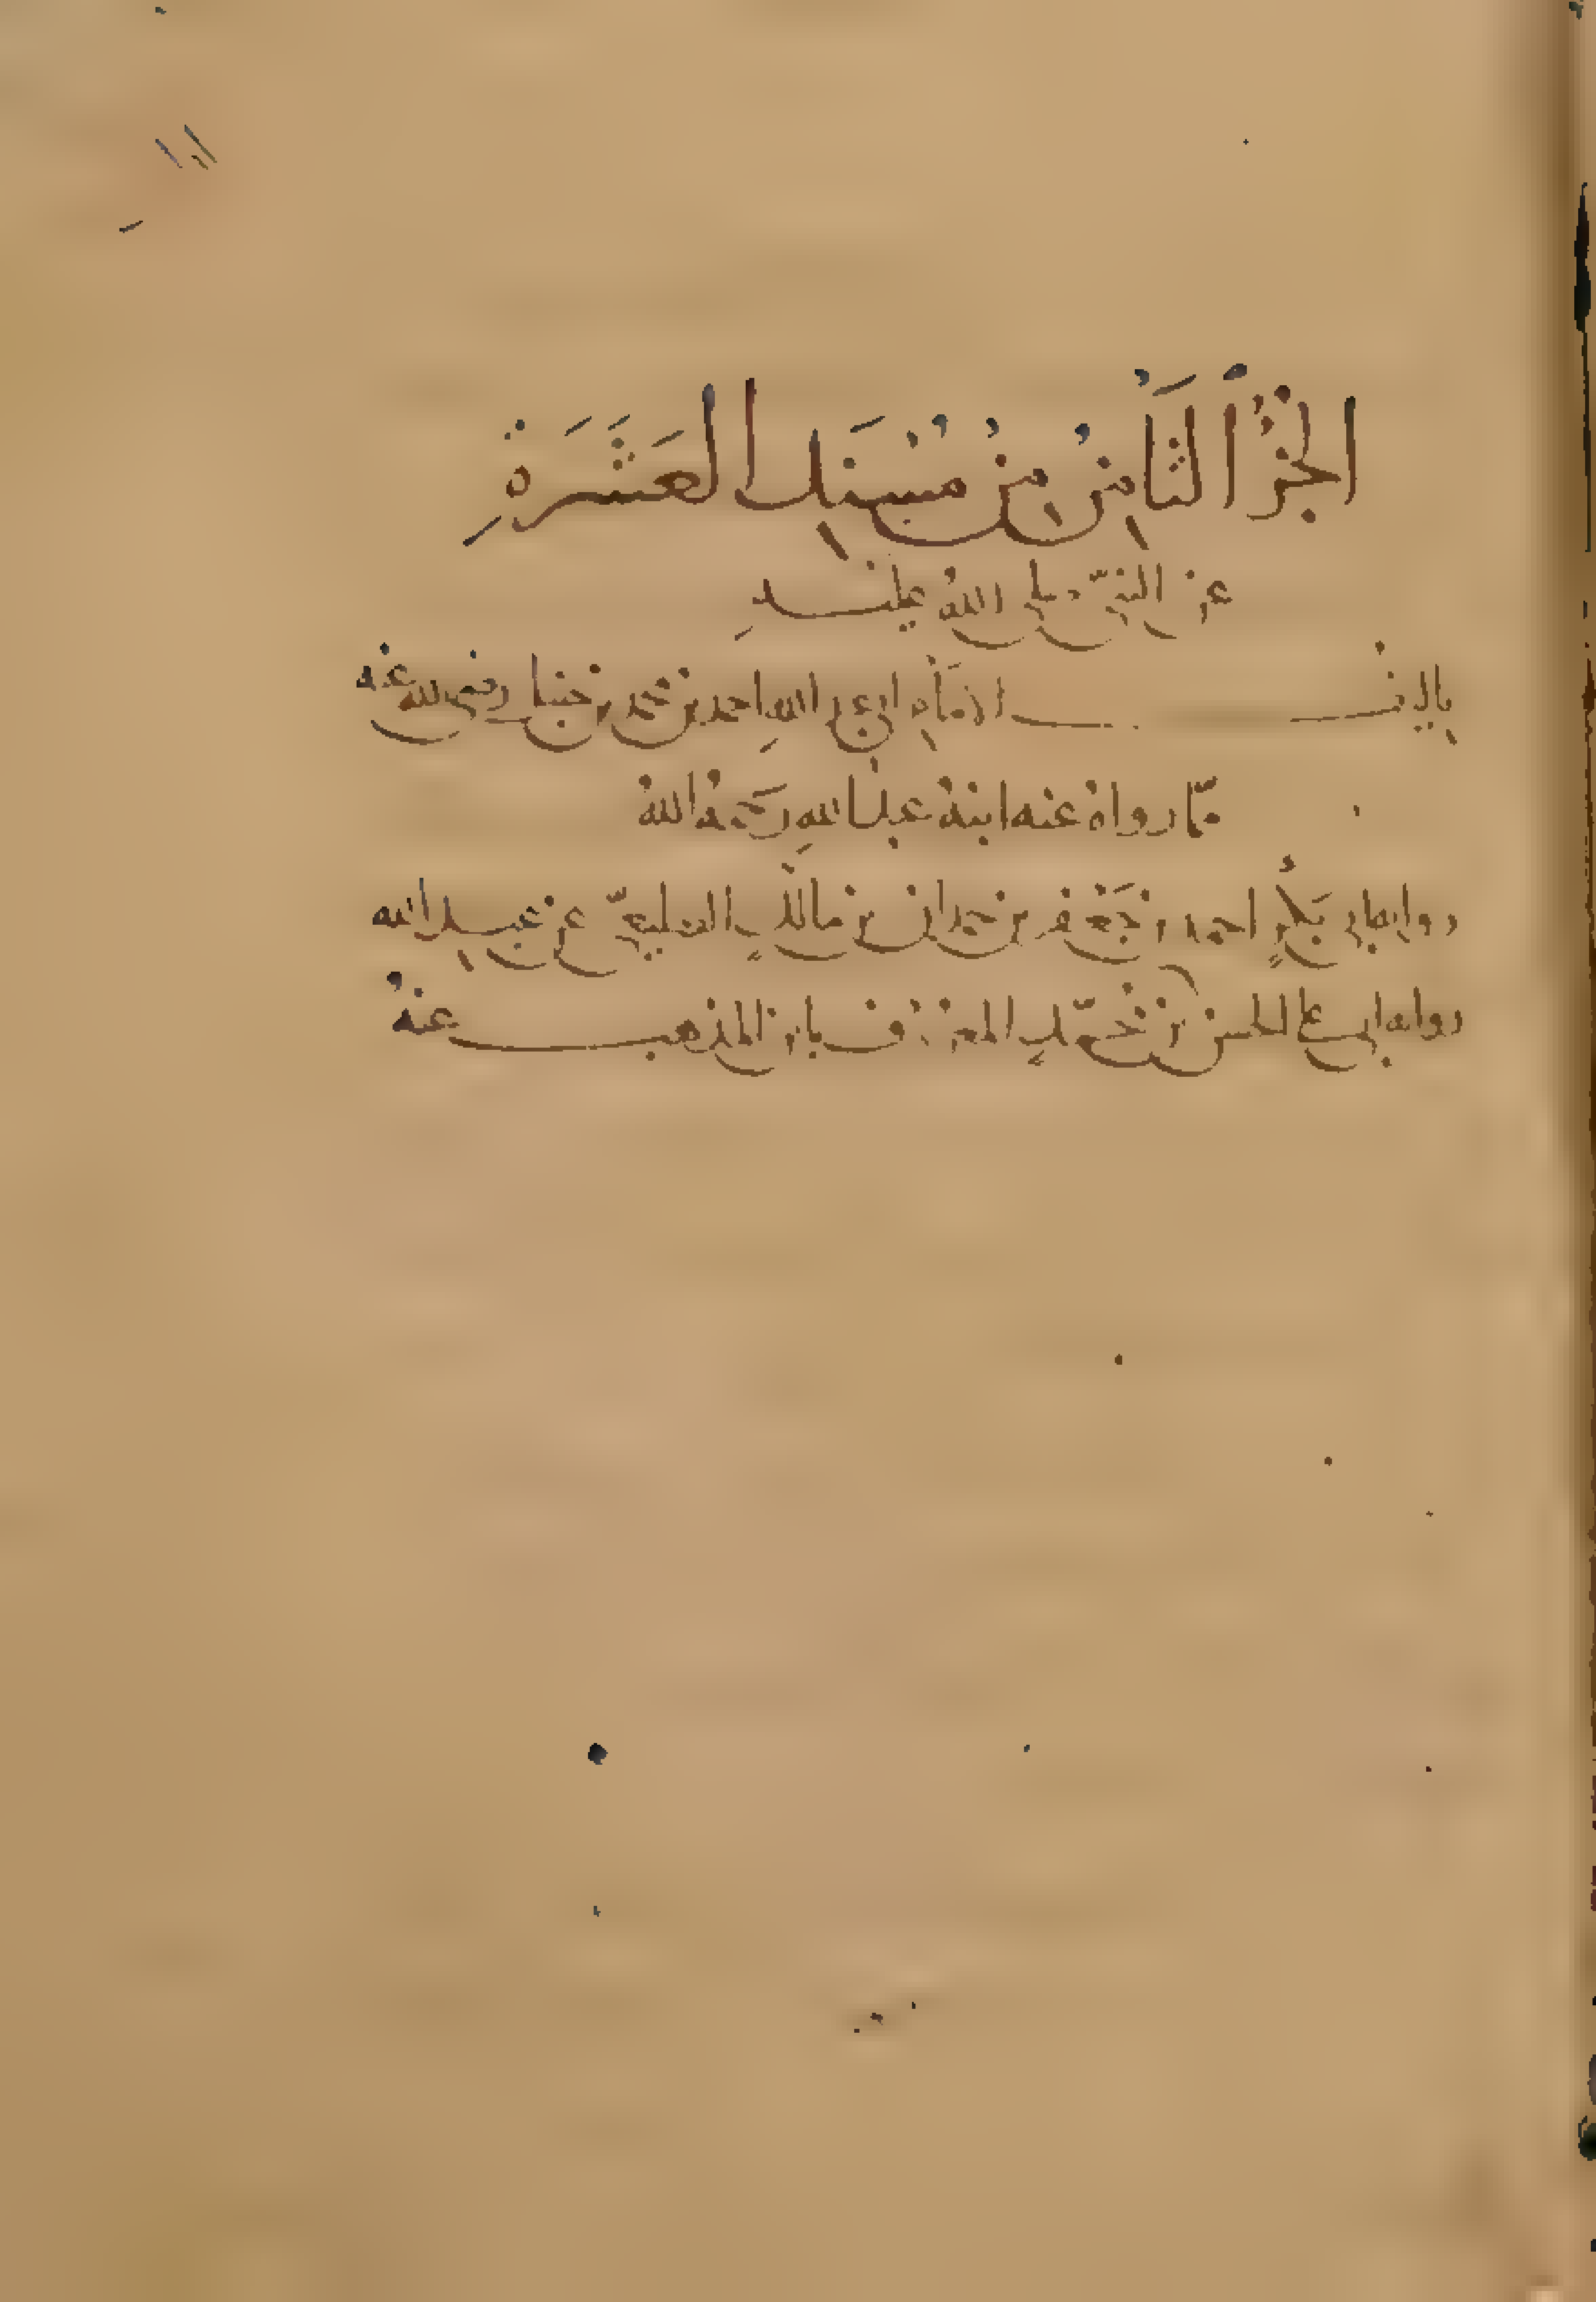 الجُزْءُ الثَّامِنُ مِنْ مُسْنَدِ العَشَرَةِ
عن النبيّ صلى اللهُ عليه
تاليف الامَامِ ابي عبد اللهِ احمد بن محمد بن حنبل رضي الله عنه
ممّا رواهُ عنه ابنهُ عبدُ اللهِ رَحمهُ اللهُ
روايه ابي بَكْرٍ احمد بن جَعْفر بن حمدان بن مالكٍ القطيعيّ عن عبدِ الله
روايه ابي علي الحسن بن محمّدٍ المعروف بابن المذهب عنهُ